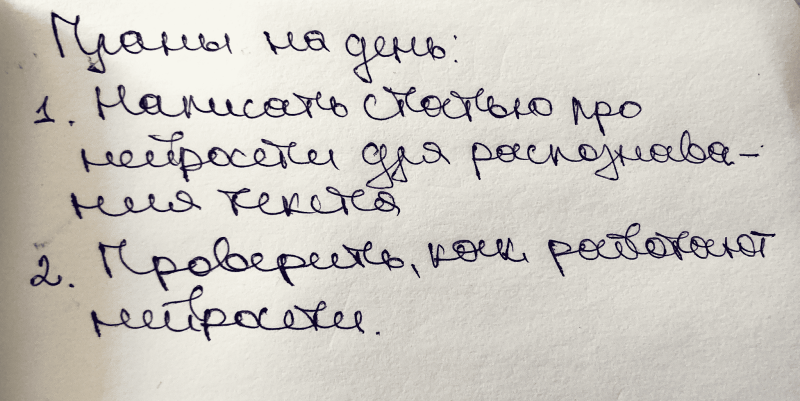 Планы на день:
1. Написать статью про
нейросети для распознава-
ния текста
2. Проверить, как работают
нейросети.